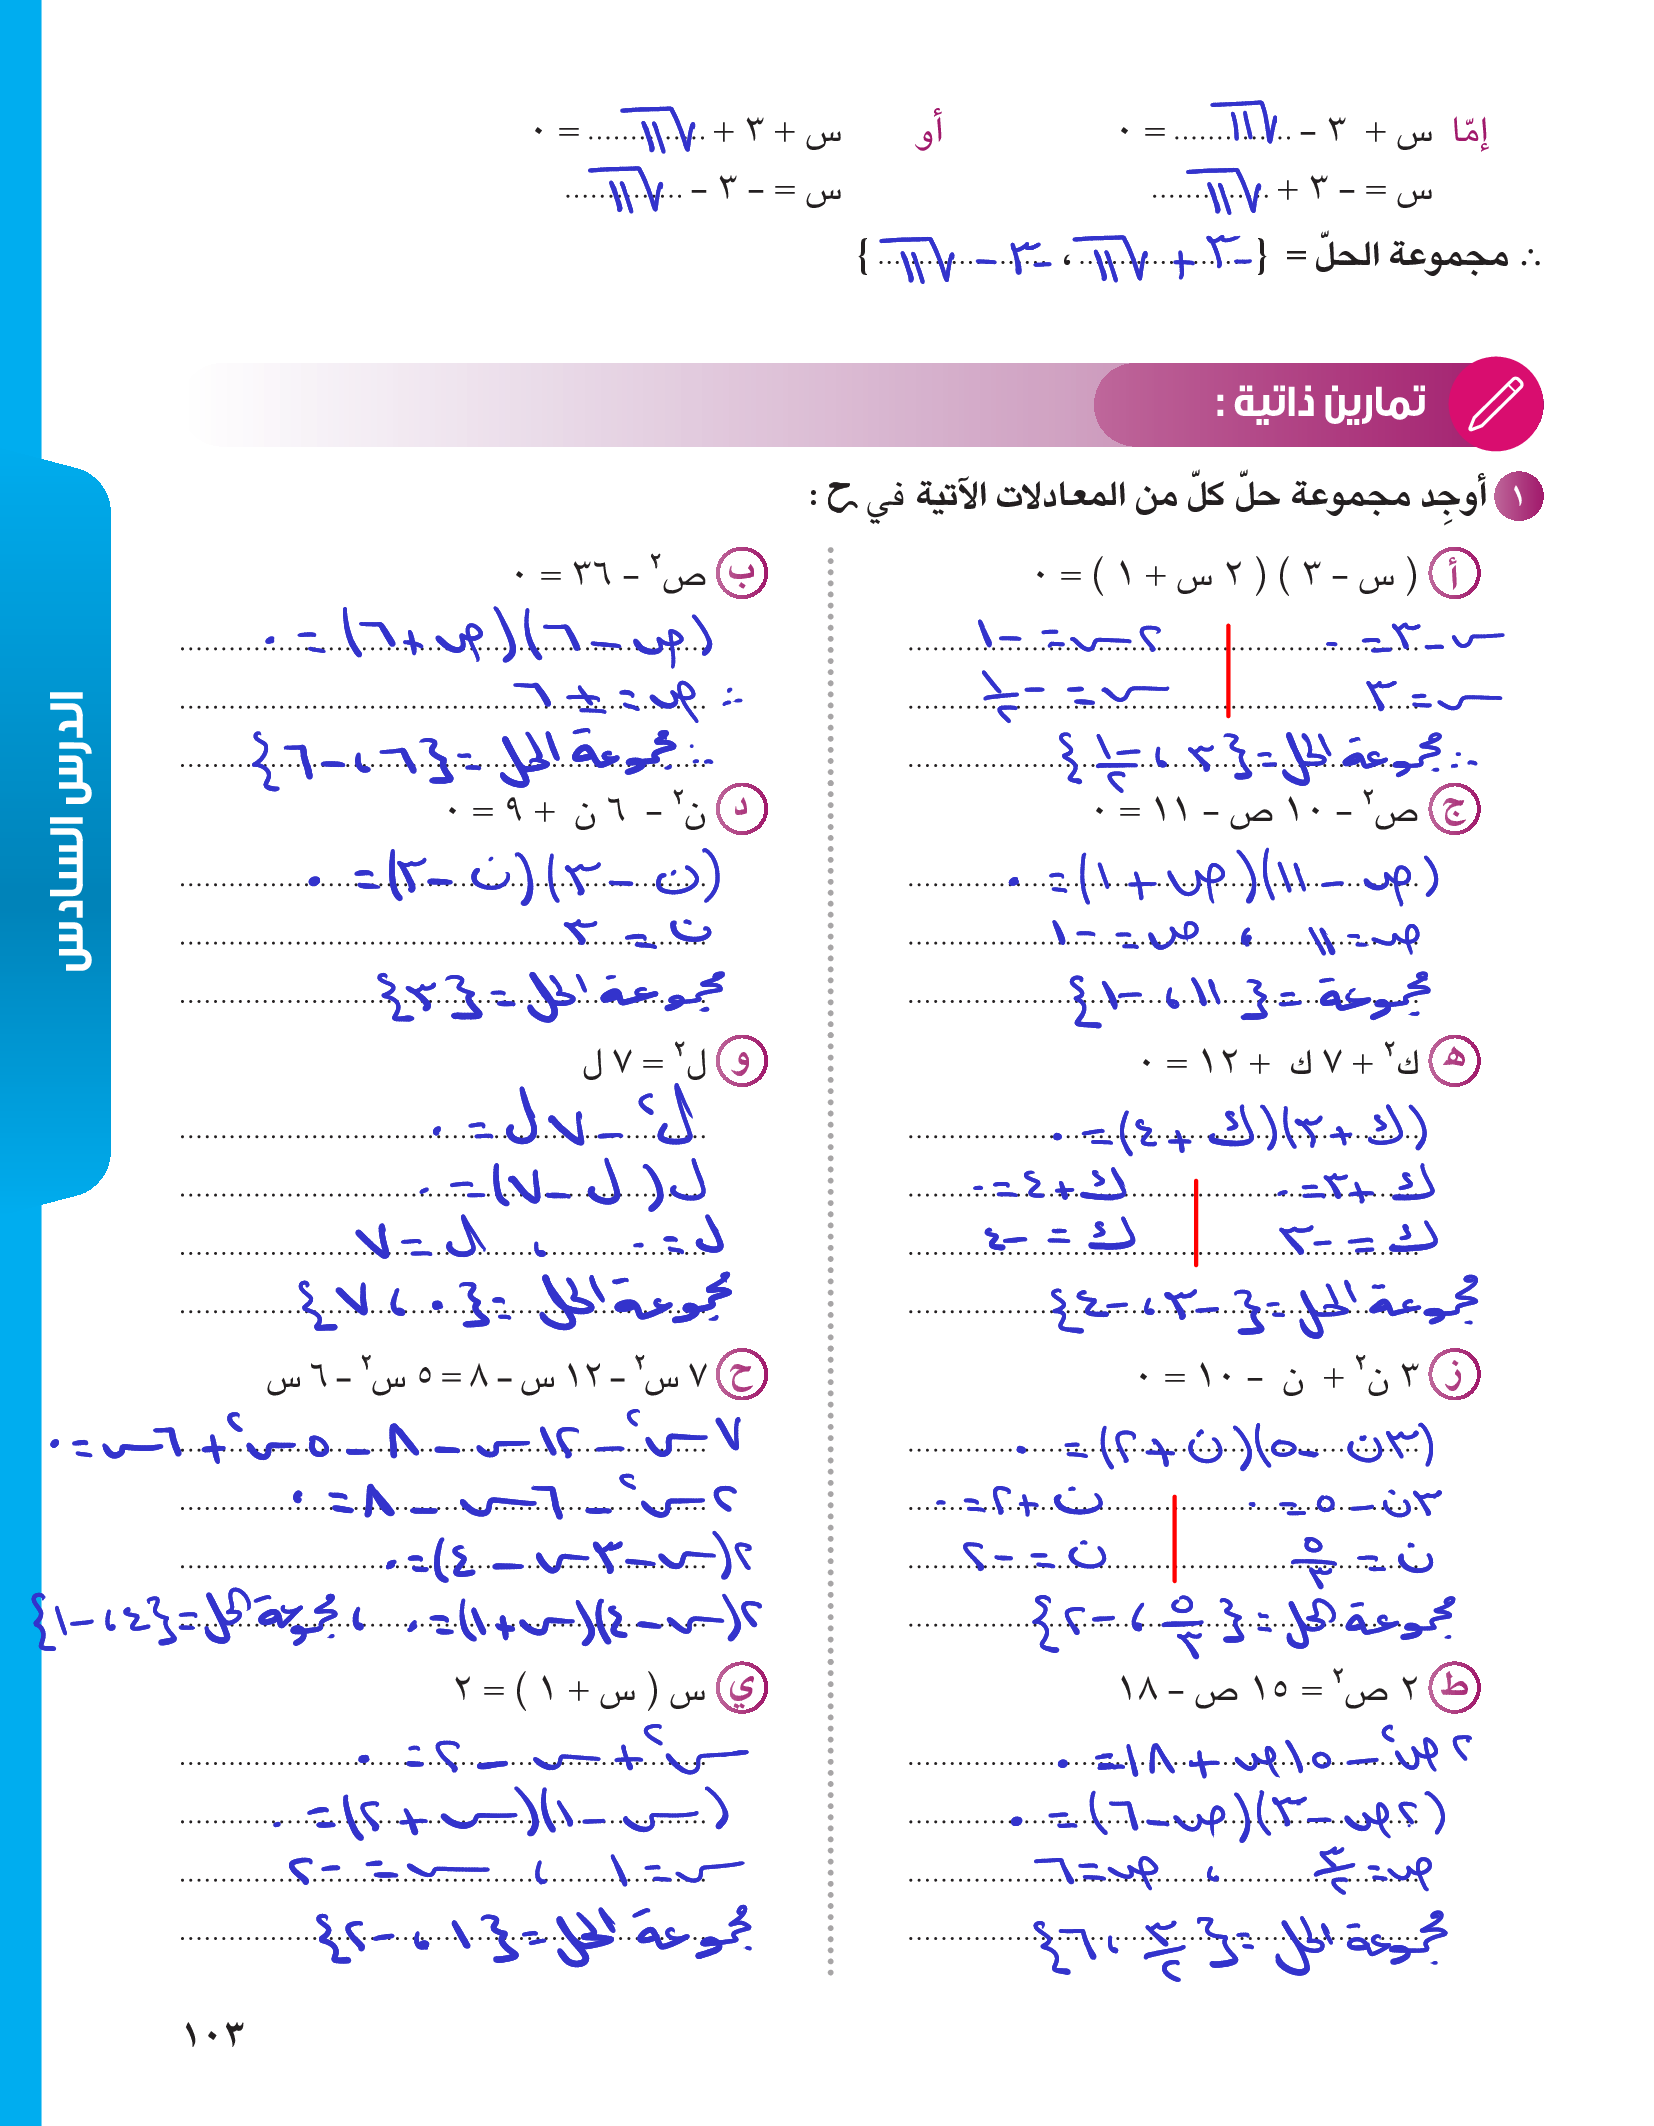 إمّا س + ٣ – √١١ = ٠ أو س + ٣ + √١١ = ٠
س = – ٣ + √١١ س = – ٣ – √١١
∴ مجموعة الحلّ = { -٣ + √١١ ، -٣ - √١١ }
تمارين ذاتية :
١ أوجِد مجموعة حلّ كلّ من المعادلات الآتية في ح :
أ ( س – ٣ ) ( ٢ س + ١ ) = ٠
س - ٣ = ٠ ٢س = -١
س = ٣ س = -١/٢
∴ مجموعة الحل = {٣ ، -١/٢}
ب ص² – ٣٦ = ٠
(ص - ٦)(ص + ٦) = ٠
∴ ص = ± ٦
∴ مجموعة الحل = {٦ ، -٦}
ج ص² – ١٠ ص – ١١ = ٠
(ص - ١١)(ص + ١) = ٠
ص = ١١ ، ص = -١
مجموعة = {١١ ، -١}
د ن² – ٦ ن + ٩ = ٠
(ن - ٣)(ن - ٣) = ٠
ن = ٣
مجموعة الحل = {٣}
ه ك² + ٧ ك + ١٢ = ٠
(ك + ٣)(ك + ٤) = ٠
ك + ٣ = ٠ ك + ٤ = ٠
ك = -٣ ك = -٤
مجموعة الحل = {-٣ ، -٤}
و ل² = ٧ ل
ل² - ٧ل = ٠
ل(ل - ٧) = ٠
ل = ٠ ، ل = ٧
مجموعة الحل = {٠ ، ٧}
ز ٣ ن² + ن – ١٠ = ٠
(٣ن - ٥)(ن + ٢) = ٠
٣ن - ٥ = ٠ ن + ٢ = ٠
ن = ٥/٣ ن = -٢
مجموعة الحل = {٥/٣ ، -٢}
ح ٧ س² – ١٢ س – ٨ = ٥ س² – ٦ س
٧س² - ١٢س - ٨ - ٥س² + ٦س = ٠
٢س² - ٦س - ٨ = ٠
٢(س - ٣س - ٤) = ٠
٢(س - ٤)(س + ١) = ٠ ، مجموعة الحل = {٤ ، -١}
ط ٢ ص² = ١٥ ص – ١٨
٢ص² - ١٥ص + ١٨ = ٠
(٢ص - ٣)(ص - ٦) = ٠
ص = ٣/٢ ، ص = ٦
مجموعة الحل = {٣/٢ ، ٦}
ي س ( س + ١ ) = ٢
س² + س - ٢ = ٠
(س - ١)(س + ٢) = ٠
س = ١ ، س = -٢
مجموعة الحل = {١ ، -٢}
الدرس السادس
١٠٣